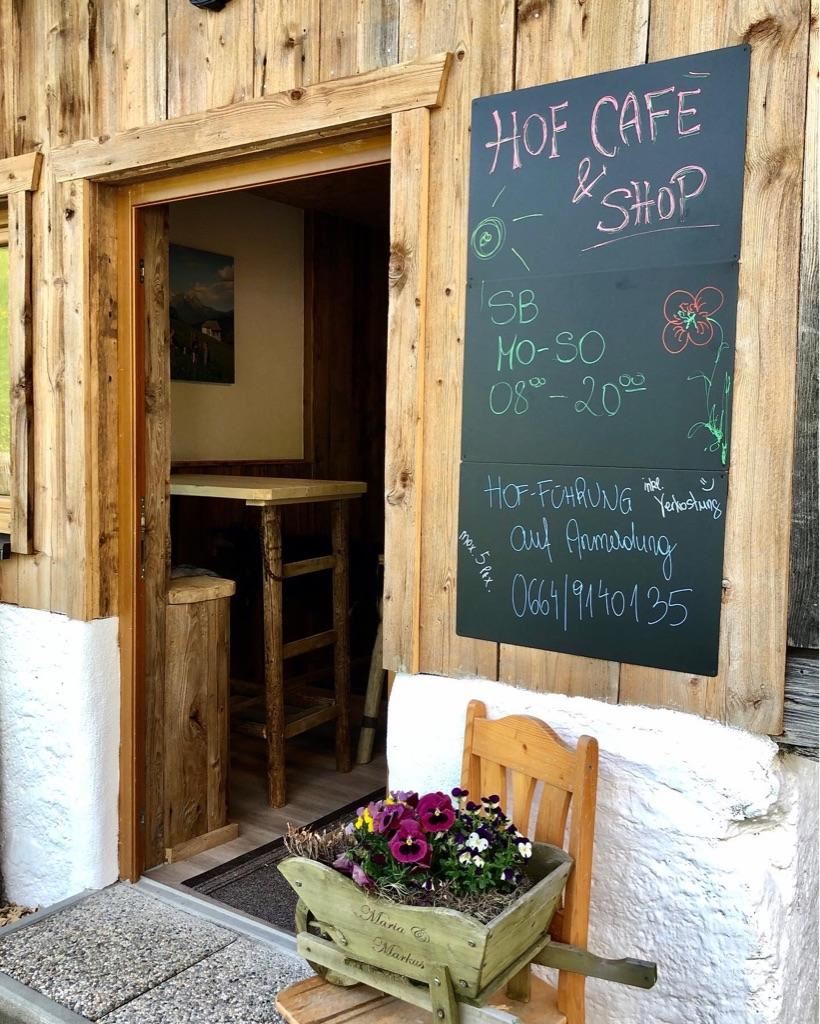 HOF CAFE
&
SHOP
SB
MO-SO
08⁰⁰-20⁰⁰
HOF-FÜHRUNG inkl. Verkostung
auf Anmeldung
max. 5 Px.
0664/9140135
Maria &
Markus